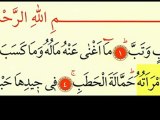 مِ اللهِ الرَّحْ
بٍ وَتَبَّ ﴿١﴾ مَا أَغْنَىٰ عَنْهُ مَالُهُ وَمَا كَسَبَ
مْرَأَتُهُ حَمَّالَةَ الْحَطَبِ ﴿٤﴾ فِي جِيدِهَا حَبْ